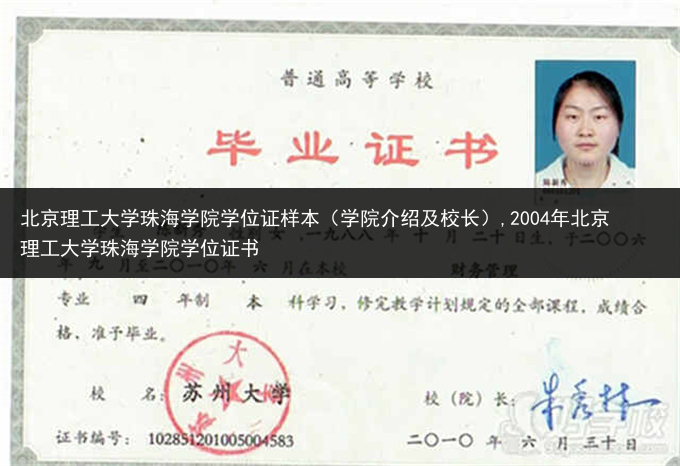 普通高等学校
毕业证书
北京理工大学珠海学院学位证样本（学院介绍及校长）,2004年北京
理工大学珠海学院学位证书
学生 性别 女，一九八八年 十 月 二十 日生，于二〇〇六
年 九 月至二〇一〇年 六 月在本校 财务管理
专业 四 年制 本 科学习，修完教学计划规定的全部课程，成绩合
格、准予毕业。
校 名：苏州大学
校（院）长：
证书编号：102851201005004583
二〇一〇 年 六 月 三十 日